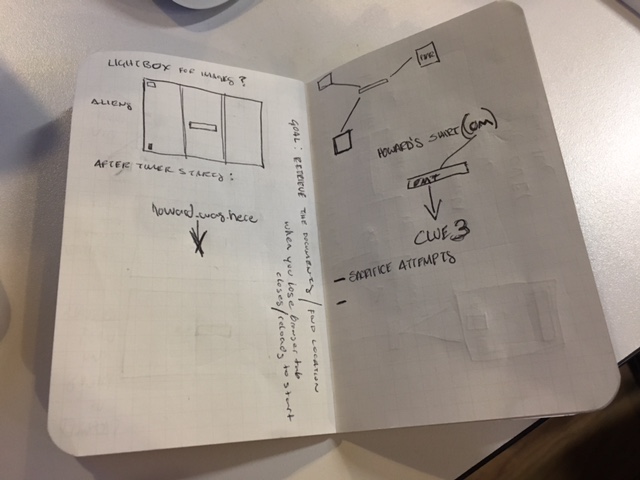 LIGHTBOX FOR IMAGES?
ALIENS
AFTER TIMER STARTED:
howard_was_here
GOAL: RETRIEVE THE DOCUMENTS / FIND LOCATION
when you lose browser tab
closes/records to start
HOWARD'S SHIRT (OM)
CLUE 3
- SACRIFICE ATTEMPTS
-